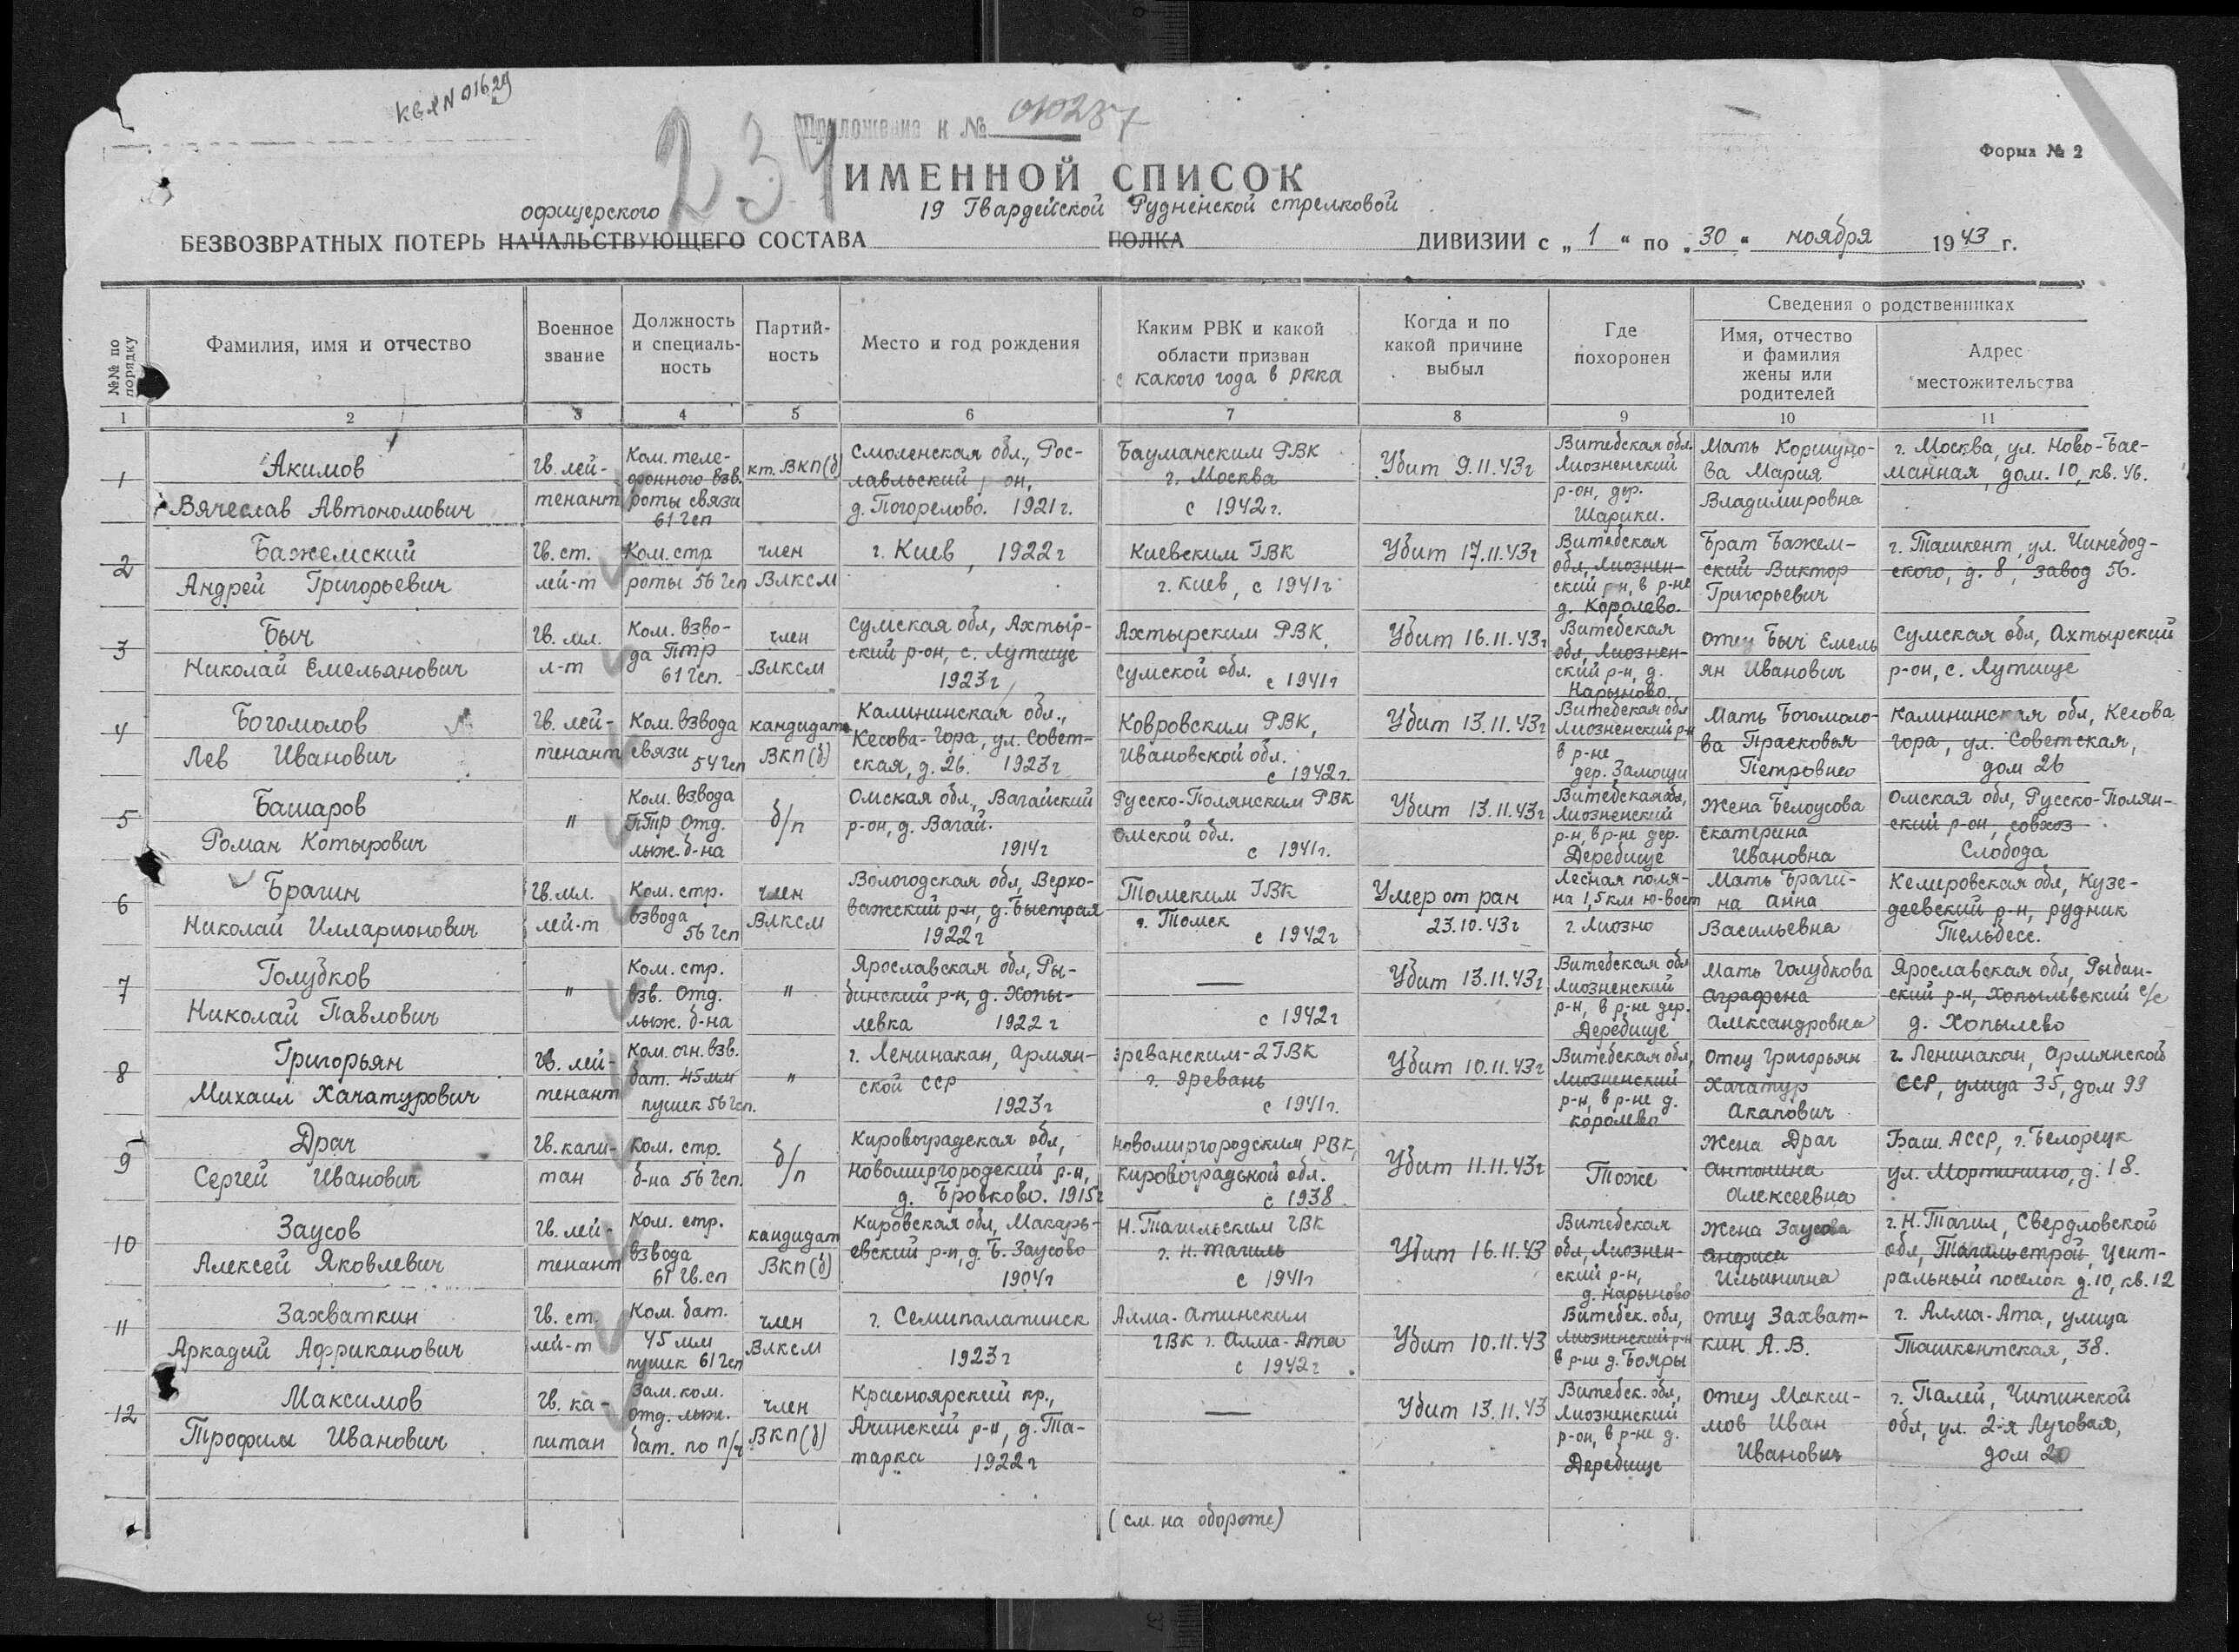 Квл N 01629
Приложение к № 010287
234
Форма № 2
ИМЕННОЙ СПИСОК
офицерского 19 Гвардейской Рудненской стрелковой
БЕЗВОЗВРАТНЫХ ПОТЕРЬ НАЧАЛЬСТВУЮЩЕГО СОСТАВА ПОЛКА ДИВИЗИИ с „ 1 “ по „ 30 “ ноября 1943 г.
№№ по порядку
Фамилия, имя и отчество
Военное звание
Должность и специальность
Партийность
Место и год рождения
Каким РВК и какой области призван
с какого года в РККА
Когда и по какой причине выбыл
Где похоронен
Сведения о родственниках
Имя, отчество и фамилия жены или родителей
Адрес местожительства
1 2 3 4 5 6 7 8 9 10 11
1
Акимов
Вячеслав Автономович
Гв. лей-
тенант
Ком. теле-
фонного взв.
роты связи
61 гсп
кт. ВКП(б)
Смоленская обл., Рос-
лавльский р-он,
д. Погорелово. 1921г.
Бауманским РВК
г. Москва
с 1942г.
Убит 9.11.43г
Витебская обл.
Лиозненский
р-он, дер.
Шарики.
Мать Коршуно-
ва Мария
Владимировна
г. Москва, ул. Ново-Бас-
манная, дом. 10, кв. 46.
2
Бажемский
Андрей Григорьевич
Гв. ст.
лей-т
Ком. стр
роты 56 гсп
член
ВЛКСМ
г. Киев, 1922г
Киевским ГВК
г. Киев, с 1941г
Убит 17.11.43г
Витебская
обл, Лиознен-
ский р-н, в р-не
д. Королево.
Брат Бажем-
ский Виктор
Григорьевич
г. Ташкент, ул.
д. 8, завод 56.
3
Быч
Николай Емельянович
Гв. мл.
л-т
Ком. взво-
да ПТР
61 гсп.
член
ВЛКСМ
Сумская обл, Ахтыр-
ский р-он, с. Лутище
1923г
Ахтырским РВК,
Сумской обл.
с 1941г
Убит 16.11.43г
Витебская
обл, Лиознен-
ский р-н, д.
Нарыново.
Отец Быч Емель
ян Иванович
Сумская обл, Ахтырский
р-он, с. Лутище
4
Богомолов
Лев Иванович
Гв. лей-
тенант
Ком. взвода
связи
54 гсп
кандидат
ВКП(б)
Калининская обл.,
Кесова-Гора, ул. Совет-
ская, д. 26. 1923г
Ковровским РВК,
Ивановской обл.
с 1942г.
Убит 13.11.43г
Витебская обл
Лиозненский р-н
в р-не
дер. Замощи
Мать Богомоло-
ва Прасковья
Петровна
Калининская обл, Кесова
гора, ул. Советская,
дом 26
5
Башаров
Роман Котырович
"
Ком. взвода
ПТР отд.
лыж. б-на
б/п
Омская обл., Вагайский
р-он, д. Вагай.
1914г
Русско-Полянским РВК
Омской обл.
с 1941г.
Убит 13.11.43г
Витебская обл,
Лиозненский
р-н, в р-не дер.
Деребище
Жена Белоусова
Екатерина
Ивановна
Омская обл, Русско-Полян-
ский р-он, совхоз
Слобода
6
Брагин
Николай Илларионович
Гв. мл.
лей-т
Ком. стр.
взвода
56 гсп
член
ВЛКСМ
Вологодская обл, Верхо-
важский р-н, д. Быстрая
1922г
Томским ГВК
г. Томск
с 1942г
Умер от ран
23.10.43г
Лесная поля-
на 1,5км ю-вост
г. Лиозно
Мать Браги-
на Анна
Васильевна
Кемеровская обл, Кузе-
деевский р-н, рудник
Тельбесс.
7
Голубков
Николай Павлович
"
Ком. стр.
взв. отд.
лыж. б-на
"
Ярославская обл, Ры-
бинский р-н, д. Хопы-
левка 1922г
—
с 1942г
Убит 13.11.43г
Витебская обл
Лиозненский
р-н, в р-не дер.
Деребище
Мать Голубкова
Аграфена
Александровна
Ярославская обл, Рыбин-
ский р-н, Хопылевский с/с
д. Хопылево
8
Григорьян
Михаил Хачатурович
Гв. лей-
тенант
Ком. огн. взв.
бат. 45мм
пушек 56 гсп.
"
г. Ленинакан, Армян-
ской ССР
1923г
Ереванским-2 ГВК
г. Еревань
с 1941г.
Убит 10.11.43г
Витебская обл,
Лиозненский
р-н, в р-не д.
Королево
Отец Григорьян
Хачатур
Акапович
г. Ленинакан, Армянской
ССР, улица 35, дом 99
9
Драч
Сергей Иванович
Гв. капи-
тан
Ком. стр.
б-на 56 гсп.
б/п
Кировоградская обл,
Новомиргородский р-н,
д. Бровково. 1915г
Новомиргородским РВК,
Кировоградской обл.
с 1938.
Убит 11.11.43г
Тоже
Жена Драч
Антонина
Алексеевна
Баш. АССР, г. Белорецк
ул. Мартынино, д. 18.
10
Заусов
Алексей Яковлевич
Гв. лей-
тенант
Ком. стр.
взвода
61 гв. сп
кандидат
ВКП(б)
Кировская обл, Макарь-
евский р-н, д. Б. Заусово
1904г
Н. Тагильским ГВК
г. Н. Тагиль
с 1941г
Убит 16.11.43
Витебская
обл, Лиознен-
ский р-н,
д. Нарыново
Жена Заусова
Анфиса
Ильинична
г. Н. Тагил, Свердловской
обл, Тагилстрой, Цент-
ральный поселок д. 10, кв. 12
11
Захваткин
Аркадий Африканович
Гв. ст.
лей-т
Ком. бат.
45 мм
пушек 61 гсп
член
ВЛКСМ
г. Семипалатинск
1923г
Алма-Атинским
ГВК г. Алма-Ата
с 1942г.
Убит 10.11.43
Витебск. обл,
Лиозненский р-н
в р-не д. Бояры
Отец Захват-
кин А. В.
г. Алма-Ата, улица
Ташкентская, 38.
12
Максимов
Трофим Иванович
Гв. ка-
питан
Зам. ком.
отд. лыж.
бат. по п/ч
член
ВКП(б)
Красноярский кр.,
Ачинский р-н, д. Та-
тарка 1922г
—
Убит 13.11.43
Витебск. обл,
Лиозненский
р-он, в р-не д.
Деребище
Отец Макси-
мов Иван
Иванович
г. Палей, Читинской
обл, ул. 2-я Луговая,
дом 20
(см. на обороте)